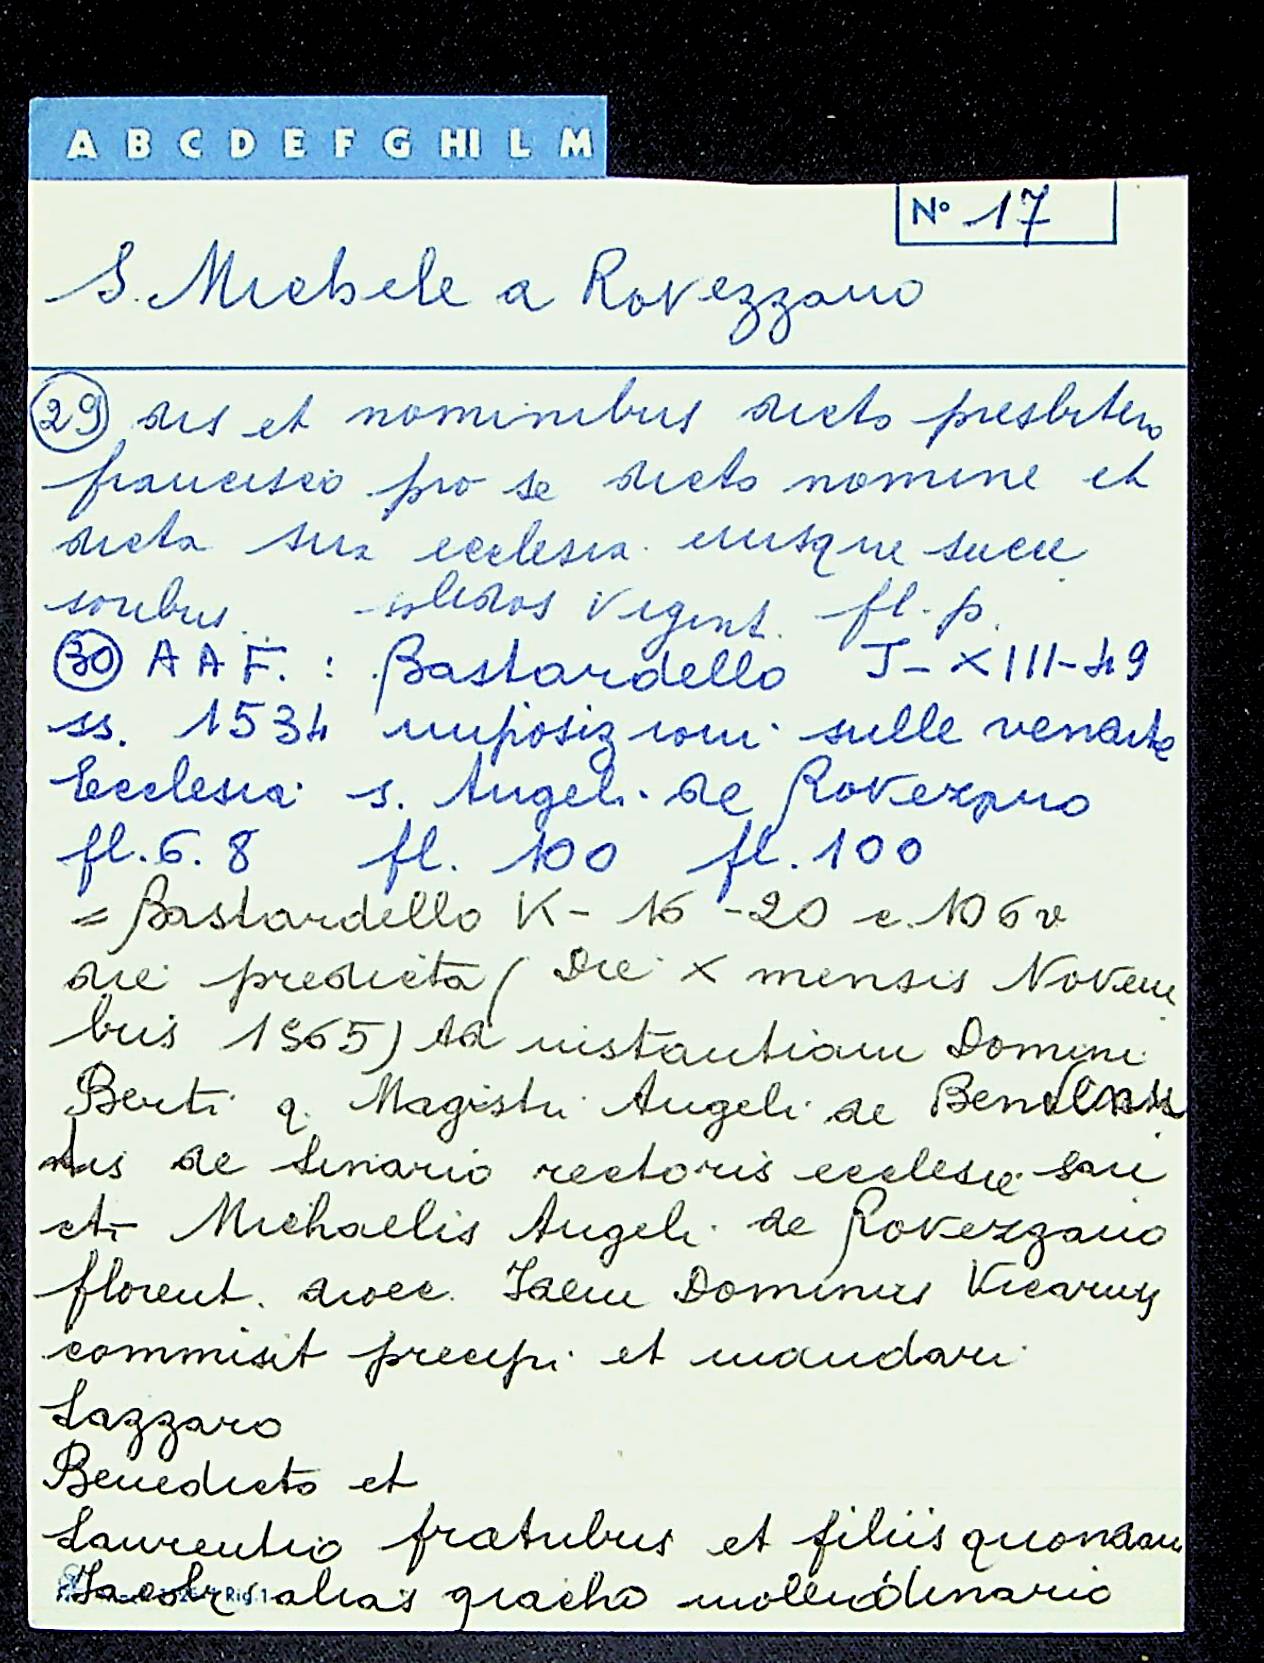 A B C D E F G HI L M
Nº 17
S. Michele a Rovezzano
29 dis et nominibus dicto presbitero
francisco pro se dicto nomine et
dicta sua ecclesia eiusque succe
soribus solidos vigint. fl. p.
30 A A F. : Bastardello J - XIII - 49
ss. 1534 imposizioni sulle vendite
Ecclesia s. Angeli de Rovezano
fl. 6. 8 fl. 100 fl. 100
= Bastardello K - 16 - 20 c. 106 v
die predicta ( Die X mensis Novem
bris 1565) Ad instantiam Domini
Berti q. Magistri Angeli de
de rectoris ecclesie San
cti Michaelis Angeli de Rovezzano
florent. dioec. Idem Dominus Vicarius
commisit precipi et mandari
Lazzaro
Benedicto et
Laurentio fratribus et filiis quondam
Jacobi alias gracho mollendinario